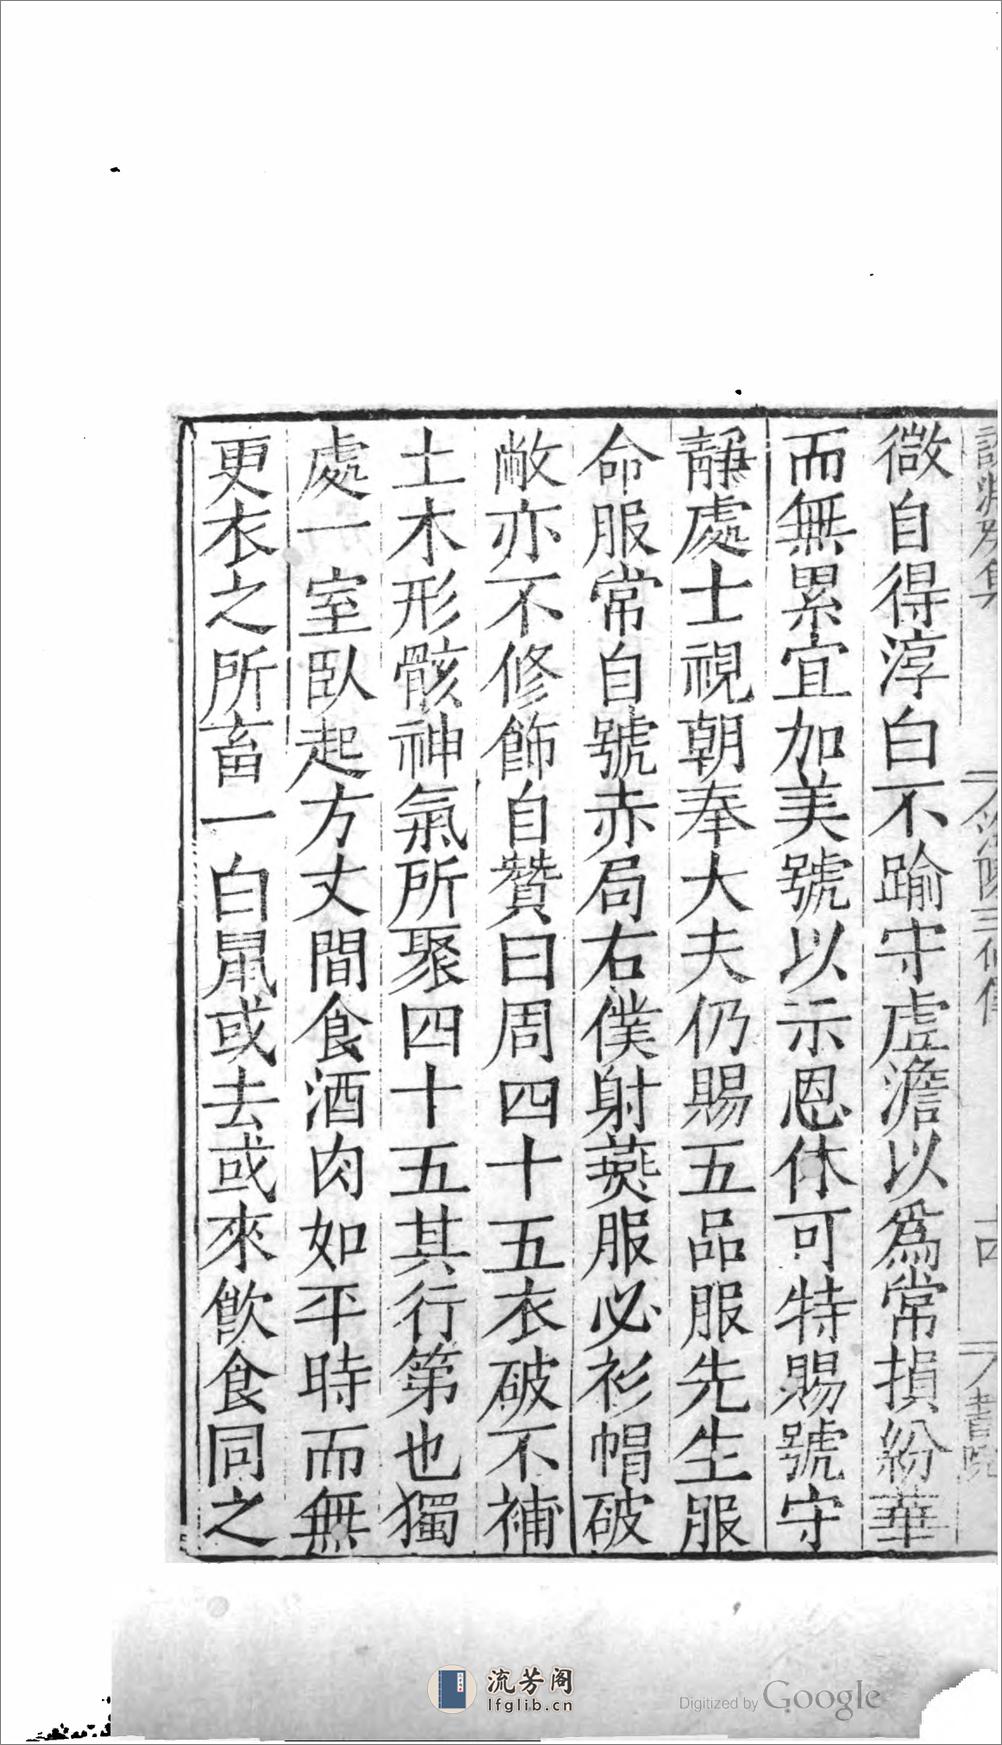 微自得淳白不踰守虛澹以爲常損紛華
而無累宜加美號以示恩休可特賜號守
靜處士視朝奉大夫仍賜五品服先生服
命服常自號赤局右僕射燕服必衫帽破
敝亦不修飾自贊曰周四十五衣破不補
土木形骸神氣所聚四十五其行第也獨
處一室臥起方丈間食酒肉如平時而無
更衣之所畜一白鼠或去或來飲食同之
流芳阁
lfglib.cn
Digitized by Google